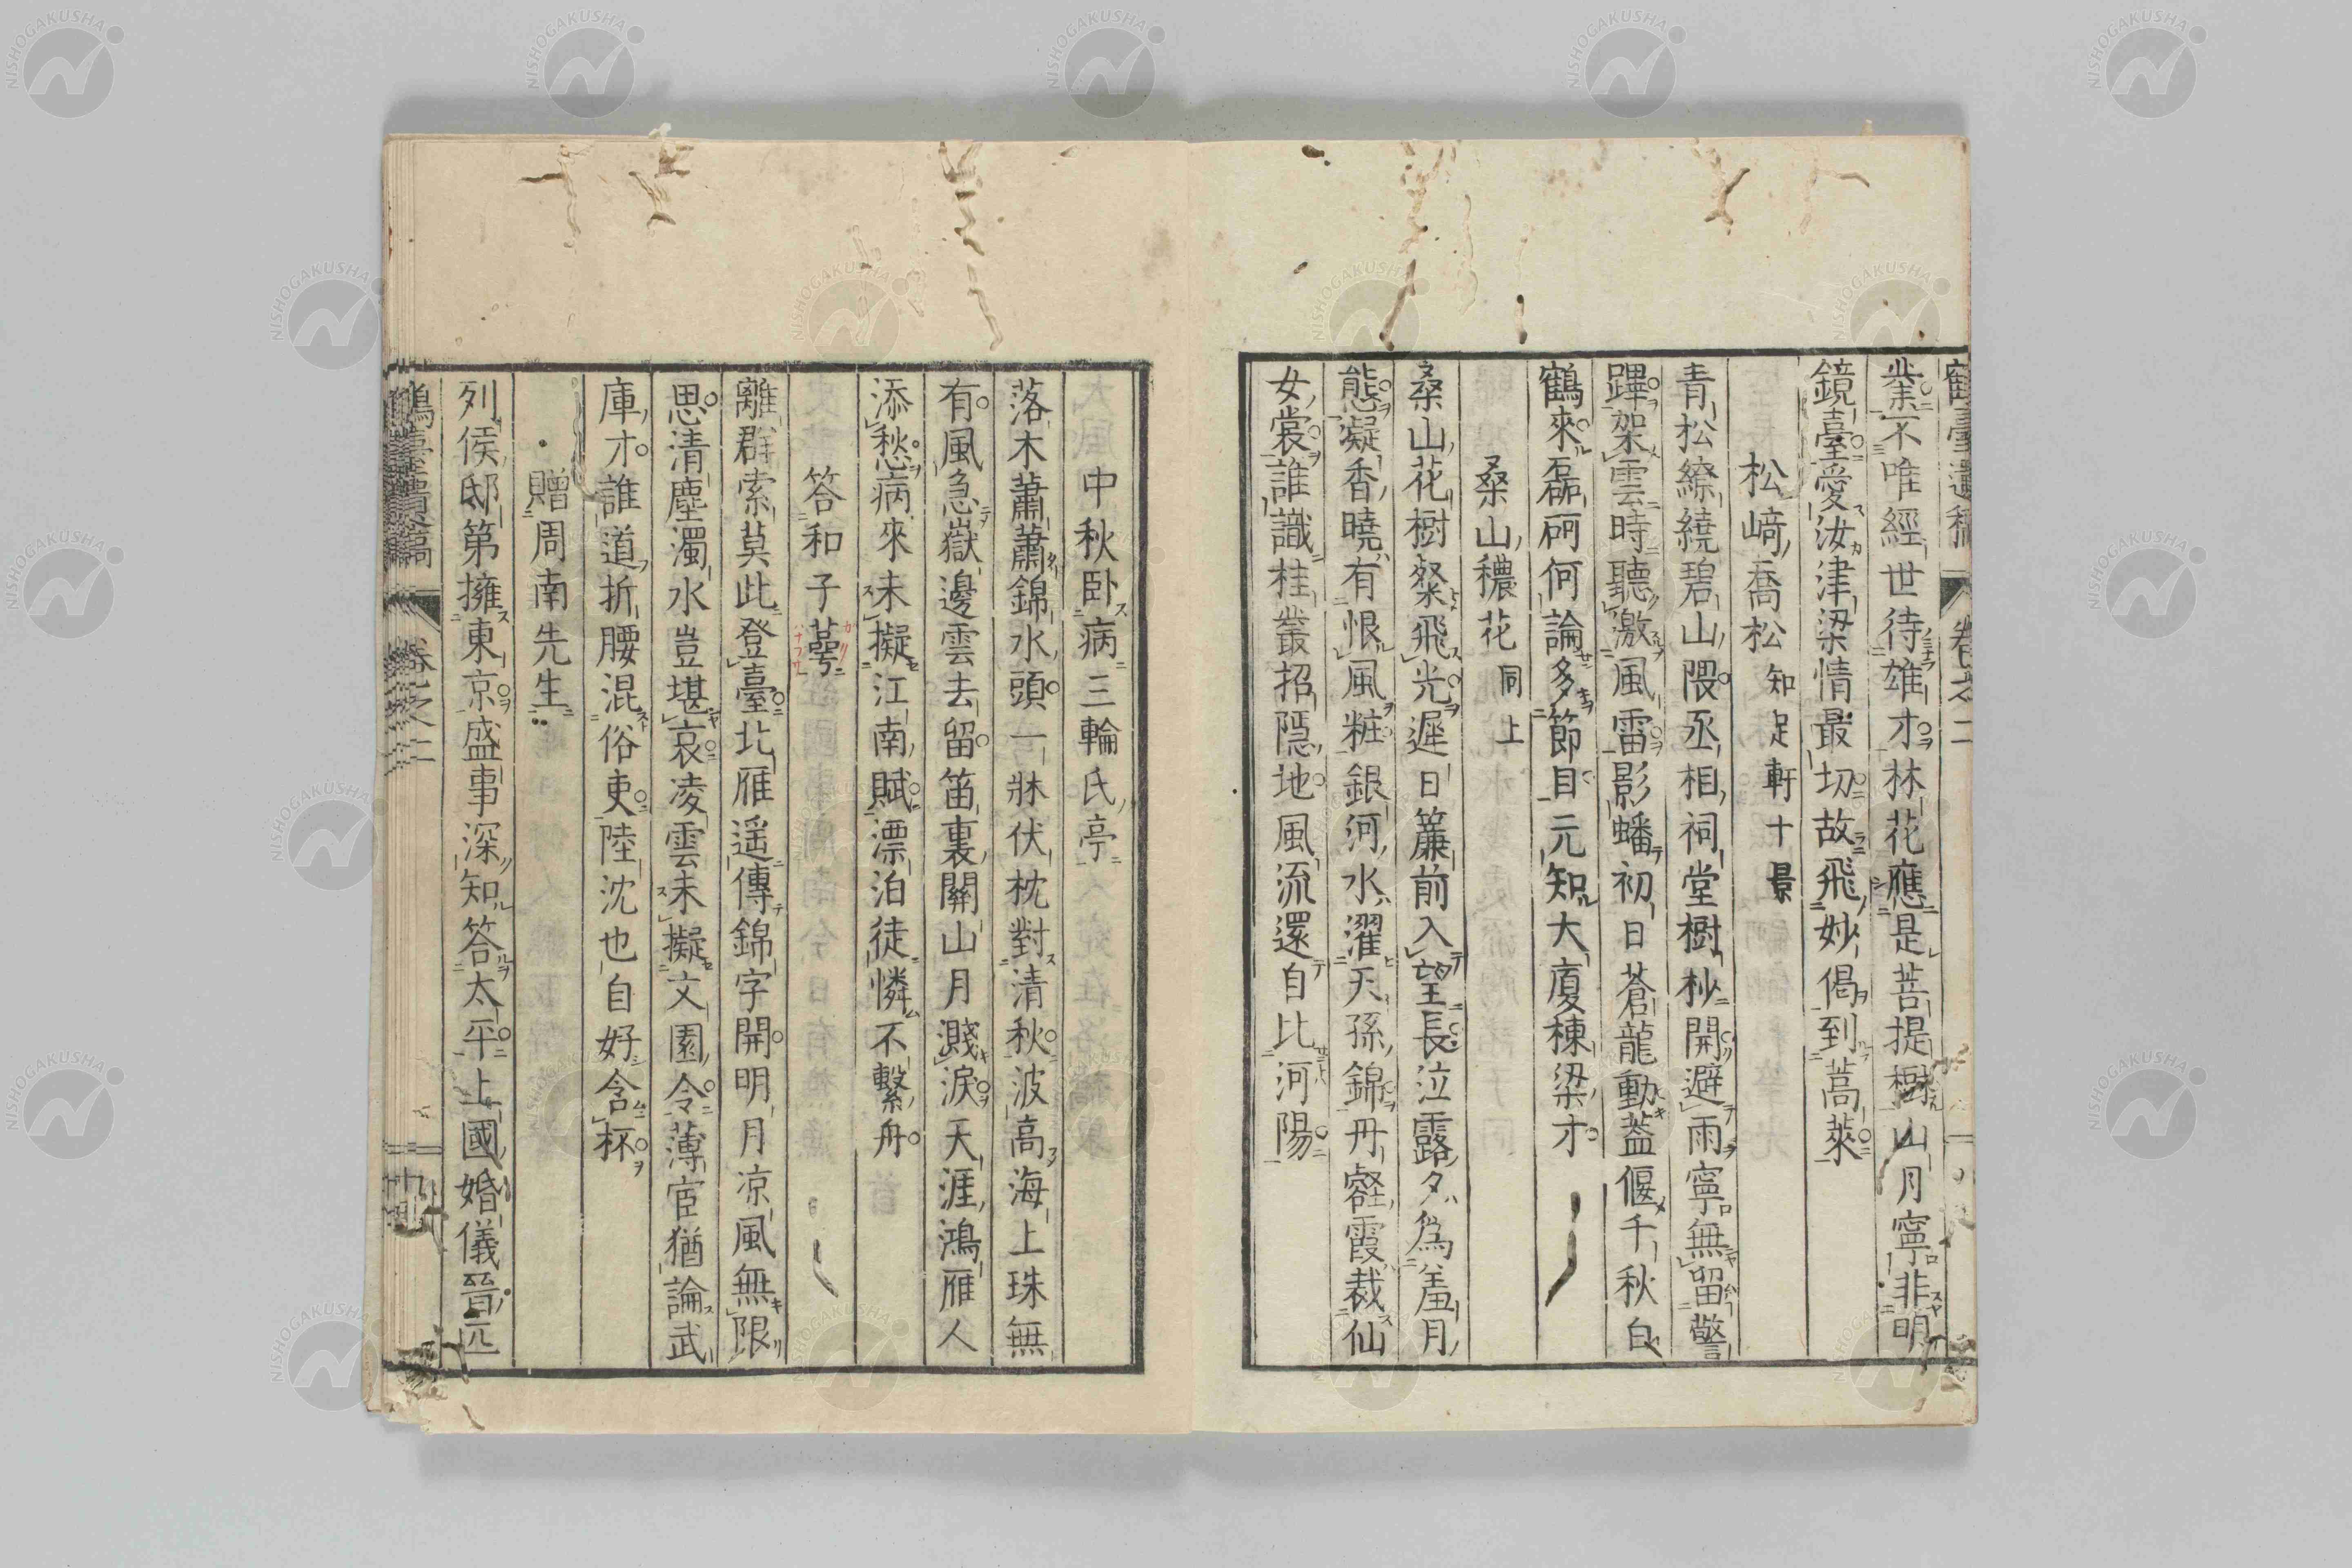 業不唯經世待雄才林花應是菩提樹山月寧非明
鏡臺愛汝津梁情最切故飛妙偈到蒿萊
松﨑喬松 知足軒十景
青松繚繞碧山隈丞相祠堂樹杪開避雨寧無留警
蹕架雲時聽激風雷影蟠初日蒼龍動蓋偃千秋白
鶴來磊砢何論多節目元知大廈棟梁才
桑山穠花 同上
桑山花樹粲飛光遲日簾前入望長泣露夕為羞月
態凝香曉有恨風粧銀河水濯天孫錦丹壑霞裁仙
女裳誰識桂叢招隱地風流還自比河陽
中秋臥病三輪氏亭
落木蕭蕭錦水頭一牀伏枕對清秋波高海上珠無
有風急嶽邊雲去留笛裏關山月濺淚天涯鴻雁人
添愁病來未擬江南賦漂泊徒憐不繫舟
答和子萼
離群索莫此登臺北雁遥傳錦字開明月凉風無限
思清塵濁水豈堪哀凌雲未擬文園令薄宦猶論武
庫才誰道折腰混俗吏陸沈也自好含杯
贈周南先生
列侯邸第擁東京盛事深知答太平上國婚儀晉元
鶴臺遺稿 卷之二